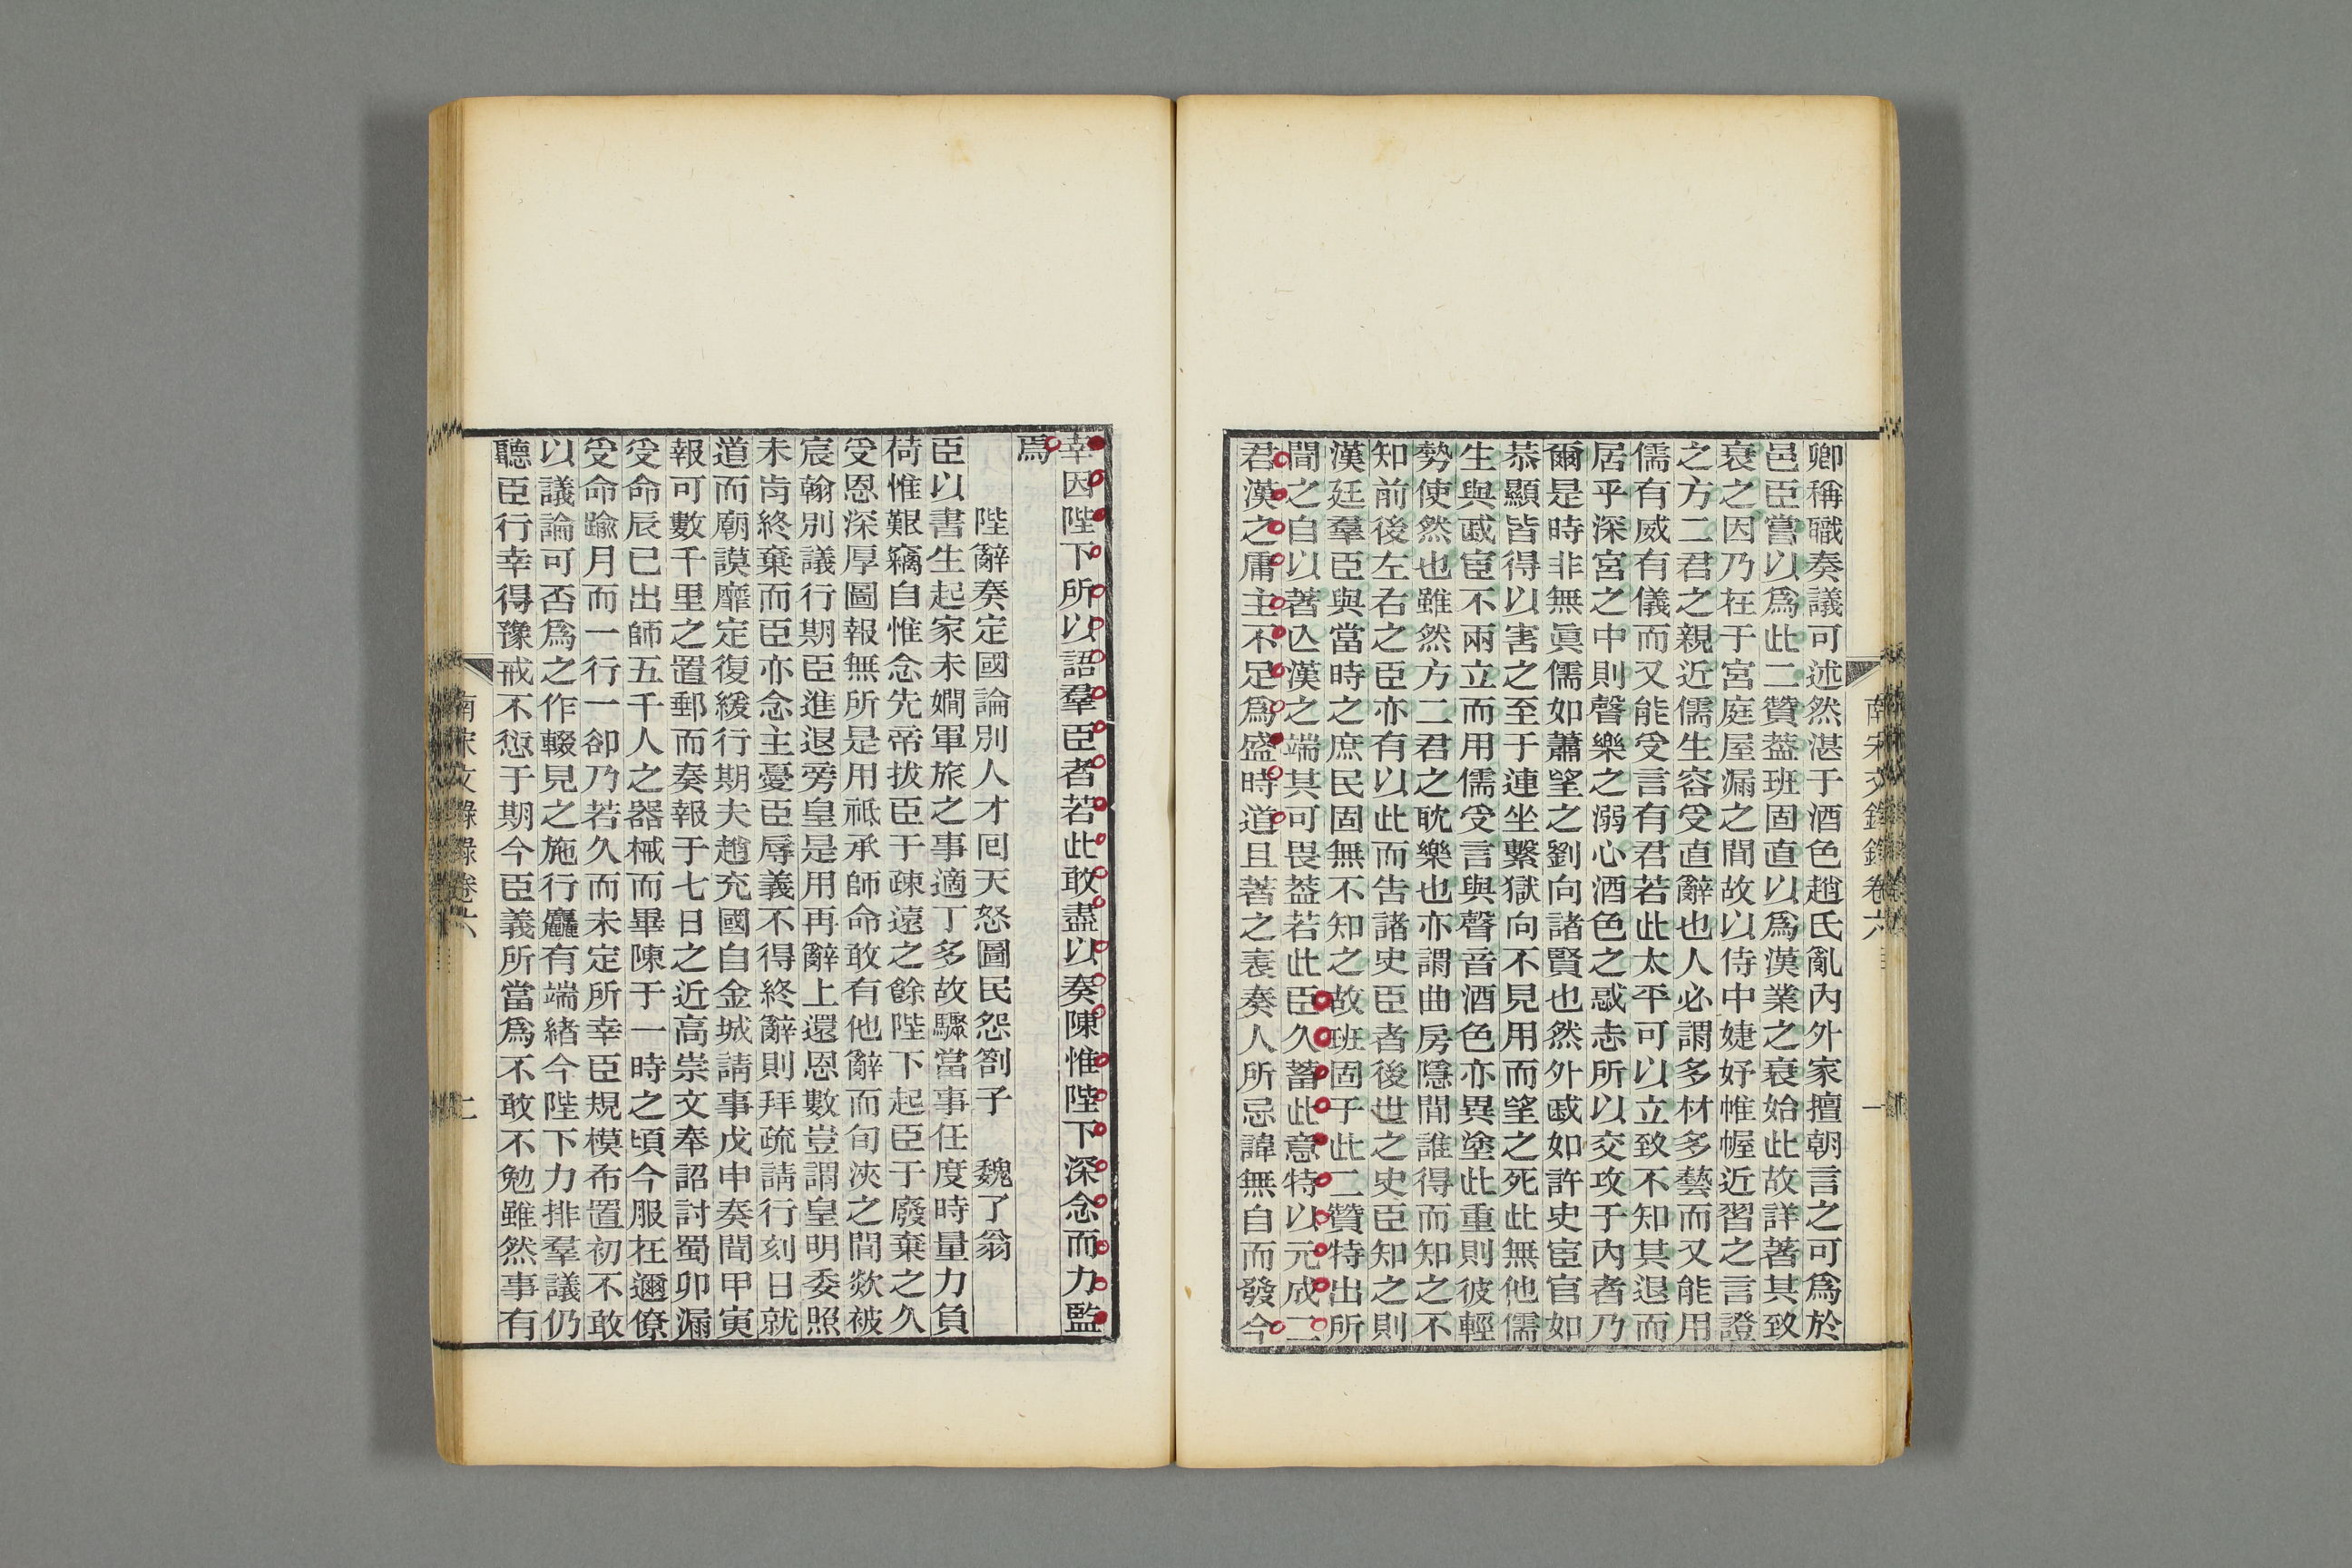 卿稱職奏議可述然湛于酒色趙氏亂內外家擅朝言之可爲於
邑臣嘗以爲此二贊葢班固直以爲漢業之衰始此故詳著其致
衰之因乃在于宮庭屋漏之間故以侍中婕妤帷幄近習之言證
之方二君之親近儒生容受直辭也人必謂多材多藝而又能用
儒有威有儀而又能受言有君若此太平可以立致不知其退而
居乎深宮之中則聲樂之溺心酒色之惑志所以交攻于內者乃
爾是時非無眞儒如蕭望之劉向諸賢也然外戚如許史宦官如
恭顯皆得以害之至于連坐繫獄向不見用而望之死此無他儒
生與戚宦不兩立而用儒受言與聲音酒色亦異塗此重則彼輕
勢使然也雖然方二君之耽樂也亦謂曲房隱間誰得而知之不
知前後左右之臣亦有以此而告諸史臣者後世之史臣知之則
漢廷羣臣與當時之庶民固無不知之故班固于此二贊特出所
聞之自以著亾漢之端其可畏葢若此臣久蓄此意特以元成二
君漢之庸主不足爲盛時道且著之裏奏人所忌諱無自而發今
南宋文錄錄卷六
一
幸因陛下所以語羣臣者若此敢盡以奏陳惟陛下深念而力監
焉
陛辭奏定國論別人才回天怒圖民怨劄子　魏了翁
臣以書生起家未嫺軍旅之事適丁多故驟當事任度時量力負
荷惟艱竊自惟念先帝拔臣于疎遠之餘陛下起臣于廢棄之久
受恩深厚圖報無所是用祗承師命敢有他辭而旬浹之間欻被
宸翰別議行期臣進退旁皇是用再辭上還恩數豈謂皇明委照
未肯終棄而臣亦念主憂臣辱義不得終辭則拜疏請行刻日就
道而廟謨靡定復緩行期夫趙充國自金城請事戊申奏聞甲寅
報可數千里之置郵而奏報于七日之近高崇文奉詔討蜀卯漏
受命辰已出師五千人之器械而畢陳于一時之頃今服在邇僚
受命踰月而一行一卻乃若久而未定所幸臣規模布置初不敢
以議論可否爲之作輟見之施行麤有端緖今陛下力排羣議仍
聽臣行幸得豫戒不愆于期今臣義所當爲不敢不勉雖然事有
南宋文錄錄卷六
二